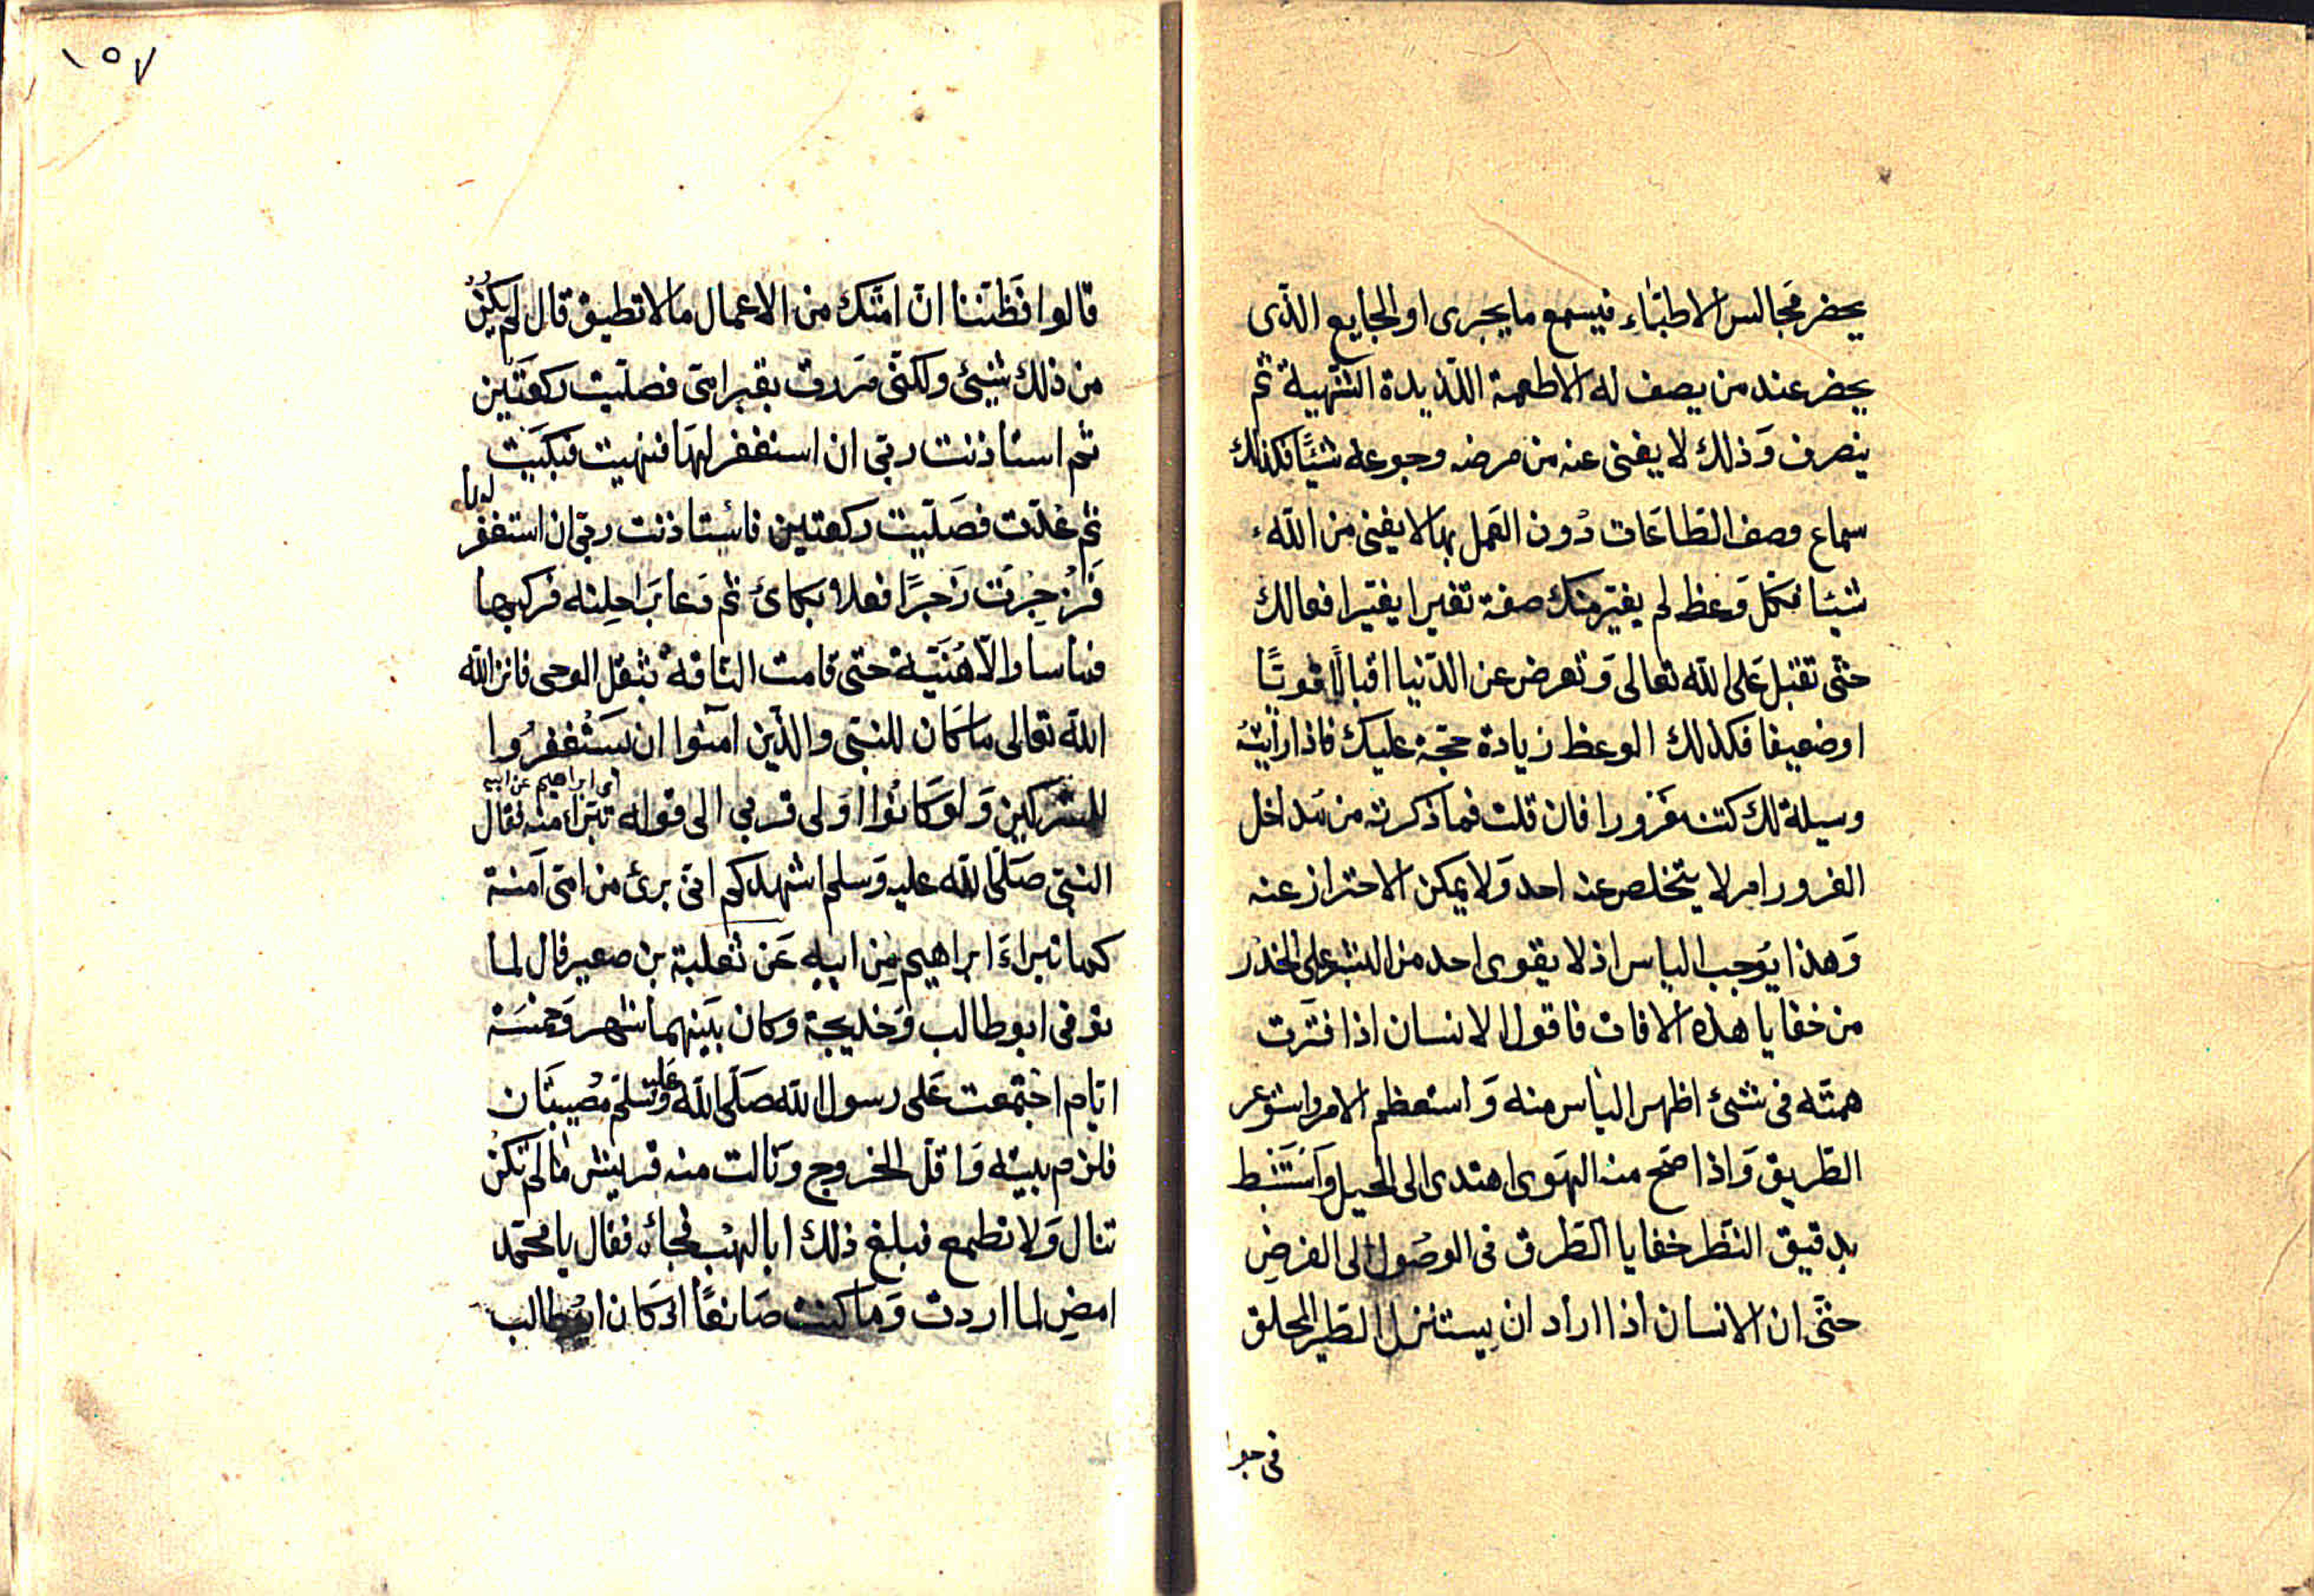 يحضر مجالس الاطباء فيسمع ما يجرى او الجايع الذى
يحضر عند من يصف له الاطعمة اللذيدة الشهية ثم
ينصرف وَذلك لا يغنى عنه من مرضه وجوعه شيئًا فكذلك
سماع وصف الطاعَات دُون العمل بها لا يغنى من الله
شيئا فكل وَعظ لم يغير منك صفة تغيرا يغير افعالك
حتى تقبل عَلى الله تعالى وَتعرض عن الدنيا اقبالًا قوتًا
او ضعيفا فكذلك الوعظ زيادة حجة عليك فاذا رأيتهُ
وسيلة لك كنت مغرورا فان قلت فما ذكرته من مَداخل
الغرور امر لا يتخلص عنه احد وَلا يمكن الاحتراز عنه
وَهذا يوُجب الياس اذ لا يقوى احد من البشر على الحذر
من خفايا هذه الافات فاقول الانسان اذا فترَت
همته فى شئ اظهر الياس منه وَاستعظم الامر واستوعر
الطريق وَاذا صَح منه الهَوى اهتدى الى الحيل وَاسَتنبَط
بدقيق النظر خفايا الطرق فى الوصُول الى الغرضِ
حتى ان الانسان اذا اراد ان يستنزل الطير المحلق
فى جو
١٥٧
قالوا فَظننا ان امتك من الاعمال ما لا تطيق قال لم يكُنْ
من ذلك شيئ ولكنى مَررت بقبر امى فصليت ركعتَين
ثم استاذنت ربى ان استغفر لهَا فنهيت فبكيَت
ثم عُدت فصَليت ركعتين فاستاذنت ربى ان استغفر لها
فَزُجِرَت زَجرًا فعلا بكائ ثم دَعا بَراحِلته فركبها
فما سار الا هُنَيّة حتى قامت الناقة بثقل الوحى فانزالله
الله تعالى ما كَان للنبى والذين آمنوا ان يَستغفرُوا
للمشركين وَلو كَانُوا اوَلى قربي الى قوله تَبَراء منه فقال
اى ابراهيم عن ابيه
النبى صَلى الله عليه وَسلم اشهدكم انى برئ من امى آمنة
كما تبراءَ ابراهيم مِن ابيه عَن ثعلبة بن صعير قال لما
توفى ابو طالب وَخديجة وكان بَينهما شهر وَخمسَة
ايام اجتمعت عَلى رسول الله صَلى الله عَليه وَسَلم مُصيبتَان
فلزم بيته وَاقل الخروج وَنالت منه قريش مَا لم تكنْ
تنال وَلا تطمع فبلغ ذلك ابا لهَب فجاءَه فقال يا محمد
امضِ لما اردت وَما كنت صَانعًا اذ كَان ابوُ طالب